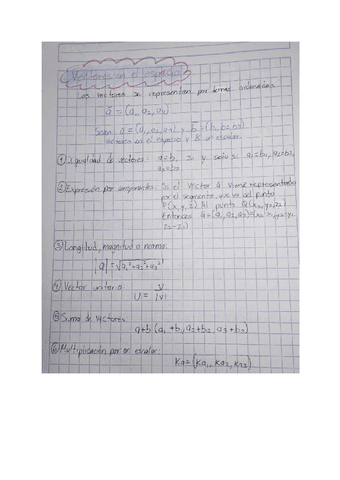 Vectores en el espacio
Los vectores se representan por ternas ordenadas
a = (a₁, a₂, a₃)
Sean a = (a₁, a₂, a₃) y b = (b₁, b₂, b₃)
vectores en el espacio y K un escalar.
① Igualdad de vectores: a = b, si y solo si a₁=b₁, a₂=b₂,
a₃=b₃
② Expresión por componentes: Si el vector a viene representado
por el segmento, que va del punto
P(x, y, z) Al punto Q(x₂, y₂, z₂)
Entonces a = (a₁, a₂, a₃) =
③ Longitud, magnitud o norma:
|a| = √a₁²+a₂²+a₃²
④ Vector unitario:
U = V/|V|
⑤ Suma de vectores:
a+b (a₁+b₁, a₂+b₂, a₃+b₃)
⑥ Multiplicación por un escalar:
Ka = (Ka₁, Ka₂, Ka₃)